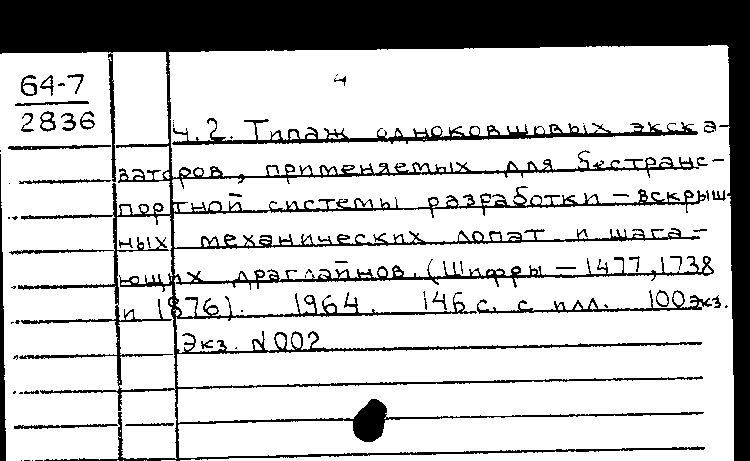 64-7
2836
4
ч.2. Типаж одноковшовых экска-
ваторов, применяемых для бестранс-
портной системы разработки - вскрыш-
ных механических лопат и шага-
ющих драглайнов. (Шифры - 1477, 1738
и 1876). 1964. 146 с. с илл. 100 экз.
Экз. №002